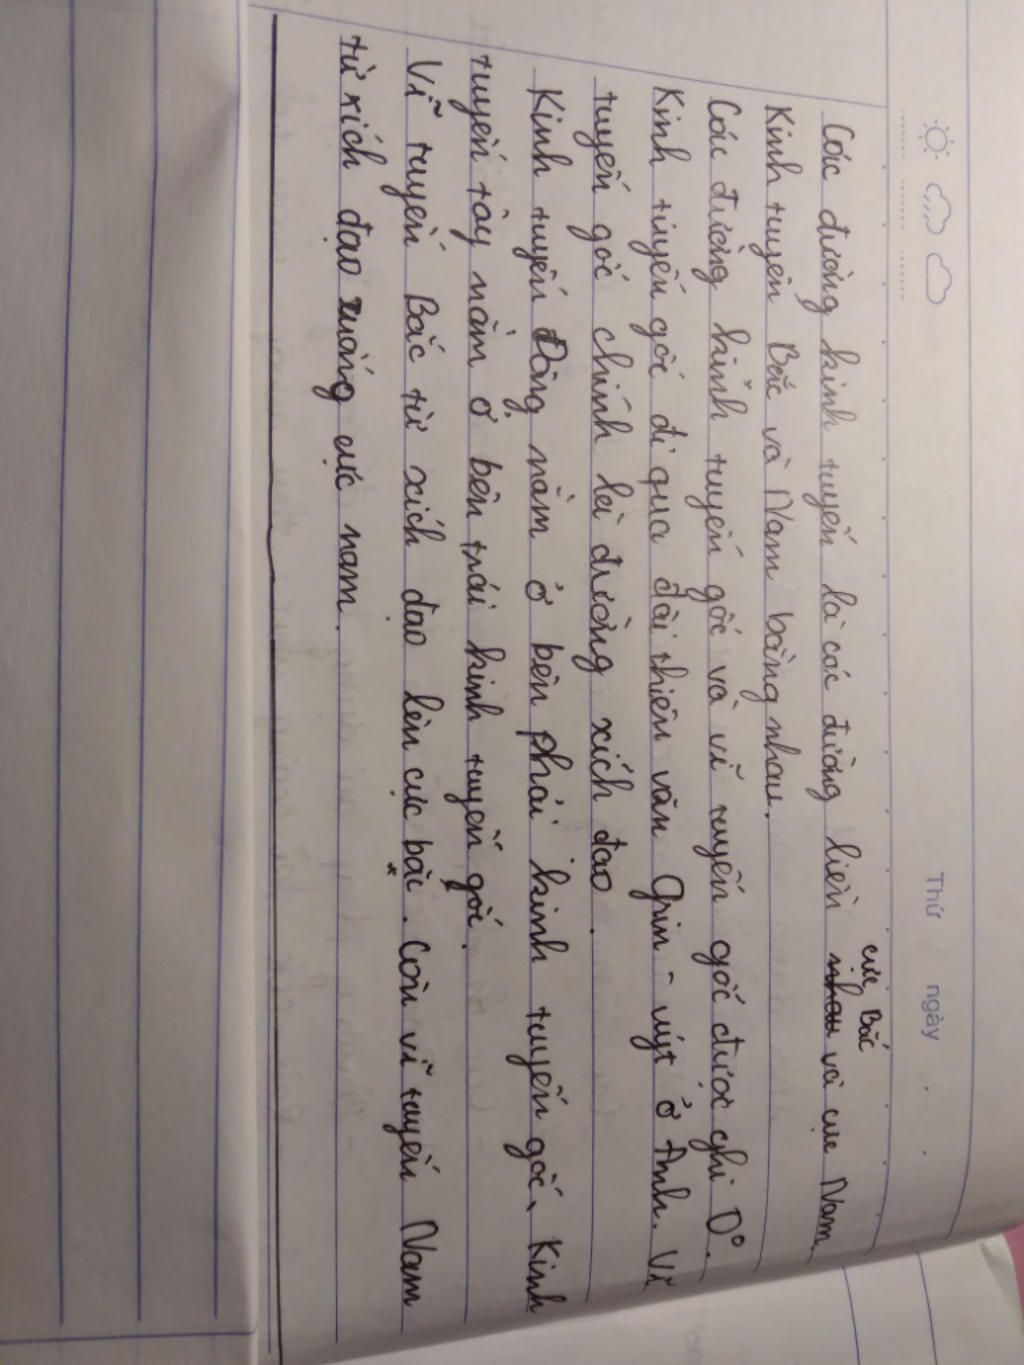 Thứ ngày
cực Bắc
Các đường kinh tuyến là các đường liền nhau và cực Nam.
Kinh tuyến Bắc và Nam bằng nhau.
Các đường kinh tuyến gốc và vĩ tuyến gốc được ghi 0°.
Kinh tuyến gốc đi qua đài thiên văn Grin-uýt ở Anh. Vĩ
tuyến gốc chính là đường xích đạo.
Kinh tuyến Đông nằm ở bên phải kinh tuyến gốc, Kinh
tuyến tây nằm ở bên trái kinh tuyến gốc.
Vĩ tuyến Bắc từ xích đạo lên cực bắc. Còn vĩ tuyến Nam
từ xích đạo xuống cực nam.